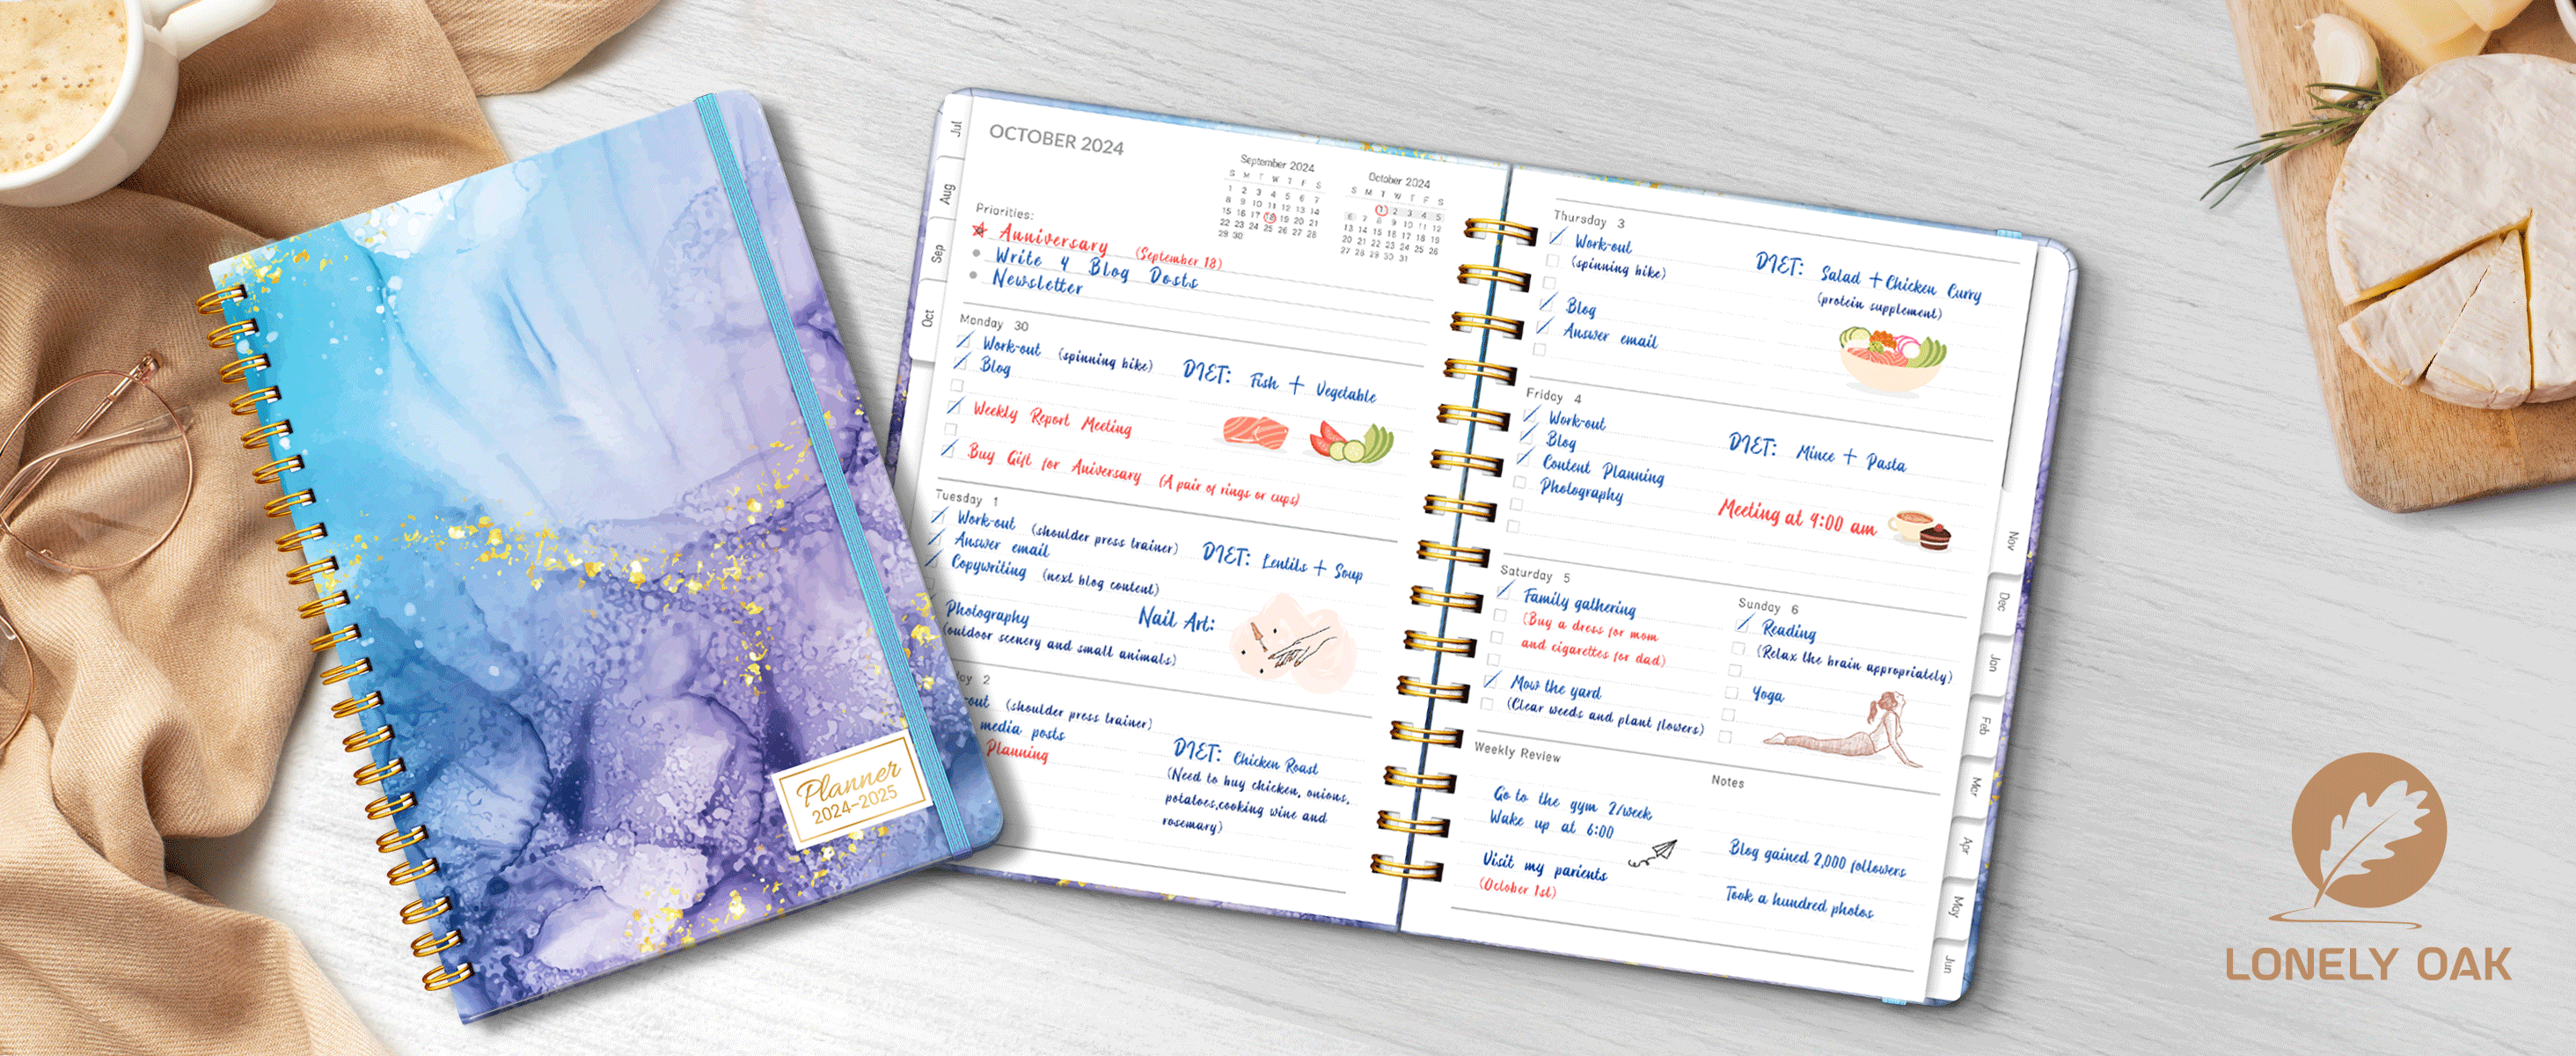 Planner
2024-2025
Jul
Aug
Sep
Oct
OCTOBER 2024
September 2024
S M T W T F S
1 2 3 4 5 6 7
8 9 10 11 12 13 14
15 16 17 18 19 20 21
22 23 24 25 26 27 28
29 30
October 2024
S M T W T F S
1 2 3 4 5
6 7 8 9 10 11 12
13 14 15 16 17 18 19
20 21 22 23 24 25 26
27 28 29 30 31
Priorities:
Anniversary (September 18)
Write 4 Blog Dosts
Newsletter
Monday 30
Work-out (spinning bike)
Blog
Weekly Report Meeting
Buy Gift for Aniversary (A pair of rings or cups)
DIET: Fish + Vegetable
Tuesday 1
Work-out (shoulder press trainer)
Answer email
Copywriting (next blog content)
Photography
(outdoor scenery and small animals)
DIET: Lentils + Soup
Nail Art:
ay 2
-out (shoulder press trainer)
media posts
Planning
DIET: Chicken Roast
(Need to buy chicken, onions,
potatoes,cooking wine and
rosemary)
Thursday 3
Work-out
(spinning bike)
Blog
Answer email
DIET: Salad + Chicken Curry
(protein supplement)
Friday 4
Work-out
Blog
Content Planning
Photography
DIET: Mince + Pasta
Meeting at 9:00 am
Saturday 5
Family gathering
(Buy a dress for mom
and cigarettes for dad)
Mow the yard
(Clear weeds and plant flowers)
Sunday 6
Reading
(Relax the brain appropriately)
Yoga
Weekly Review
Go to the gym 2/week
Wake up at 6:00
Visit my parients
(October 1st)
Notes
Blog gained 2,000 followers
Took a hundred photos
Nov
Dec
Jan
Feb
Mar
Apr
May
Jun
LONELY OAK